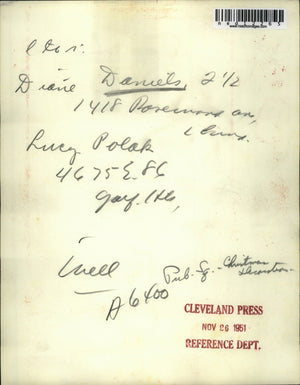 l to r.
Diane Daniels, 2 1/2
1418 Rosemond av,
Lucy Polak
4675 E. 86
Gar. Hts,
Mell
A6400
Pub. Sq. - Christmas
Decorations
CLEVELAND PRESS
NOV 26 1951
REFERENCE DEPT.